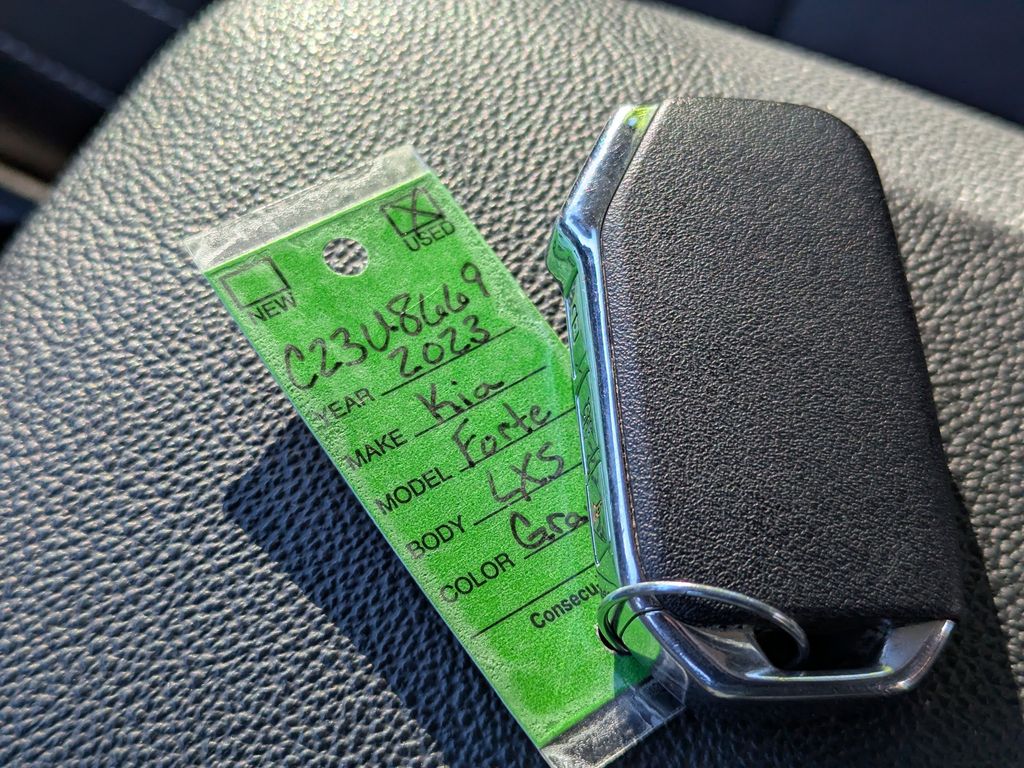 NEW USED
C23U8669
YEAR 2023
MAKE Kia
MODEL Forte
BODY LXS
COLOR Gra
Consecu